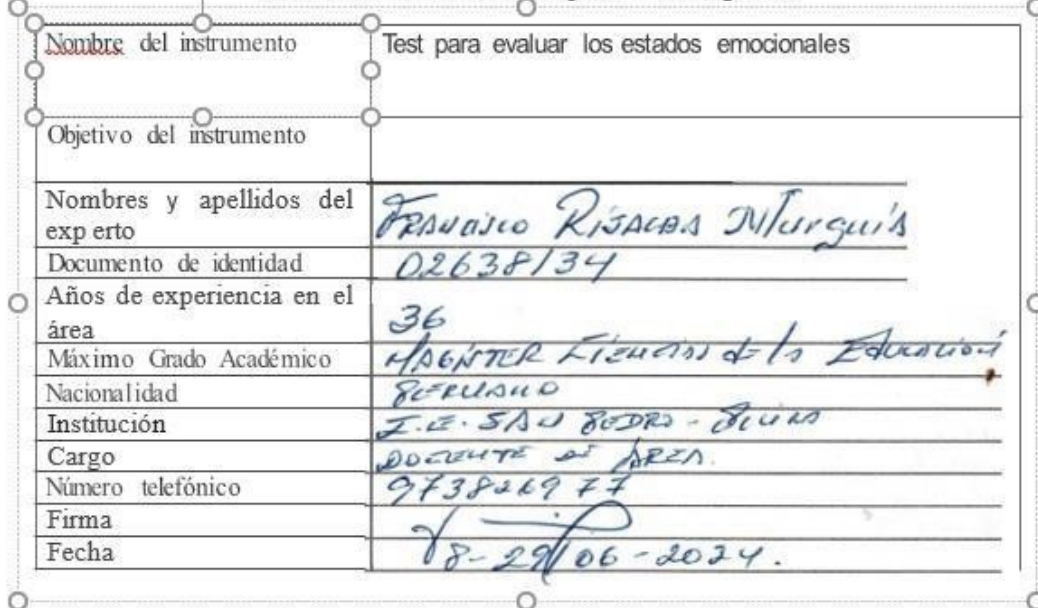 Nombre del instrumento Test para evaluar los estados emocionales
Objetivo del instrumento
Nombres y apellidos del
exp erto Francisco Risalba Murguía
Documento de identidad 02638134
Años de experiencia en el
área 36
Máximo Grado Académico MAGISTER Ciencias de la Educación
Nacionalidad PERUANO
Institución I.E. SAN PEDRO - PIURA
Cargo DOCENTE DE AREA.
Número telefónico 973826977
Firma
Fecha 29/06-2024.